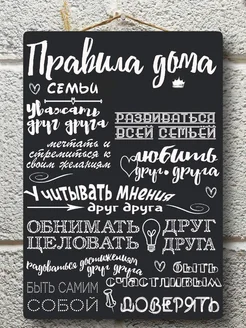 Правила дома
семьи
уважать
друг друга
развиваться
всей семьей
мечтать и
стремиться к
своим желаниям
любить
друг друга
Учитывать мнения
друг друга
обнимать
целовать
друг
друга
радоваться достижениям
друг друга
быть самим
собой
быть
счастливым
доверять